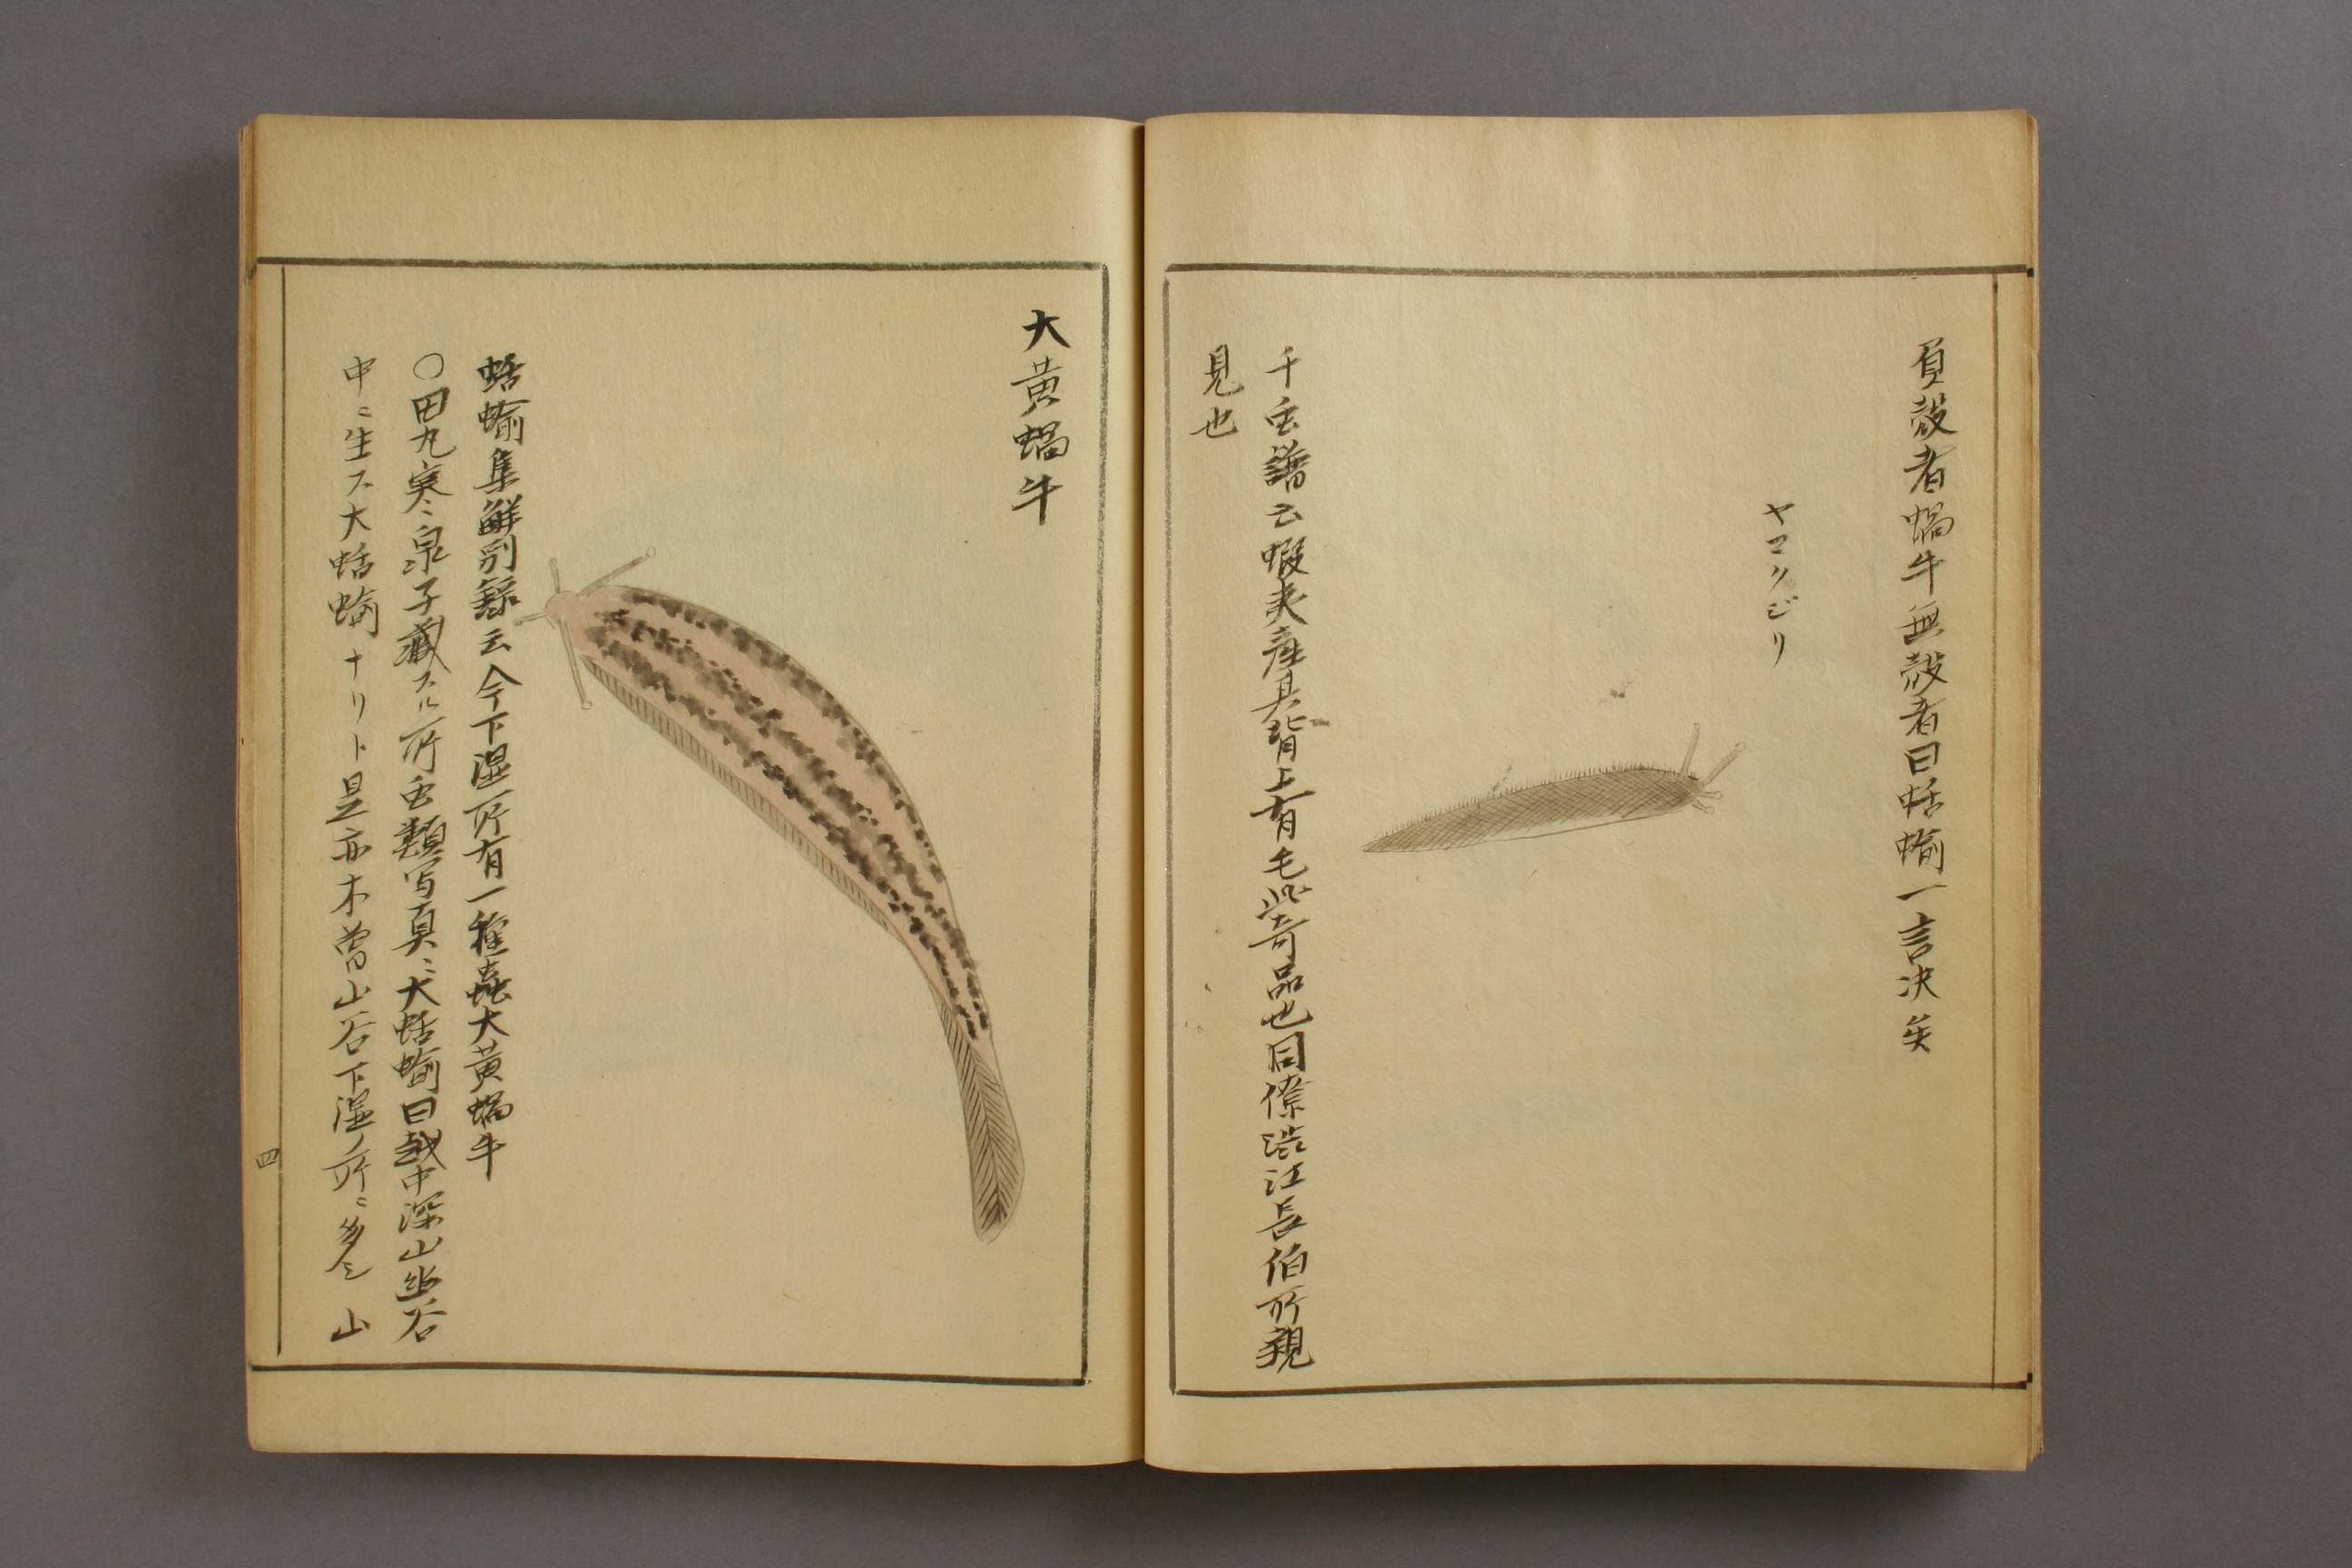 負殻者蝸牛無殻者曰蛞蝓一言决矣
ヤマクジリ
千虫譜云蝦夷産具背上有毛此奇品也同僚渋江長伯所親
見也
大黄蝸牛
蛞蝓集鮮別録云今下湿所有一種蟲大黄蝸牛
〇田丸寒泉子蔵スル所虫類写真ニ大蛞蝓曰越中深山幽谷
中ニ生ス大蛞蝓ナリト是亦木曽山谷下湿ノ所ニ多シ山
四